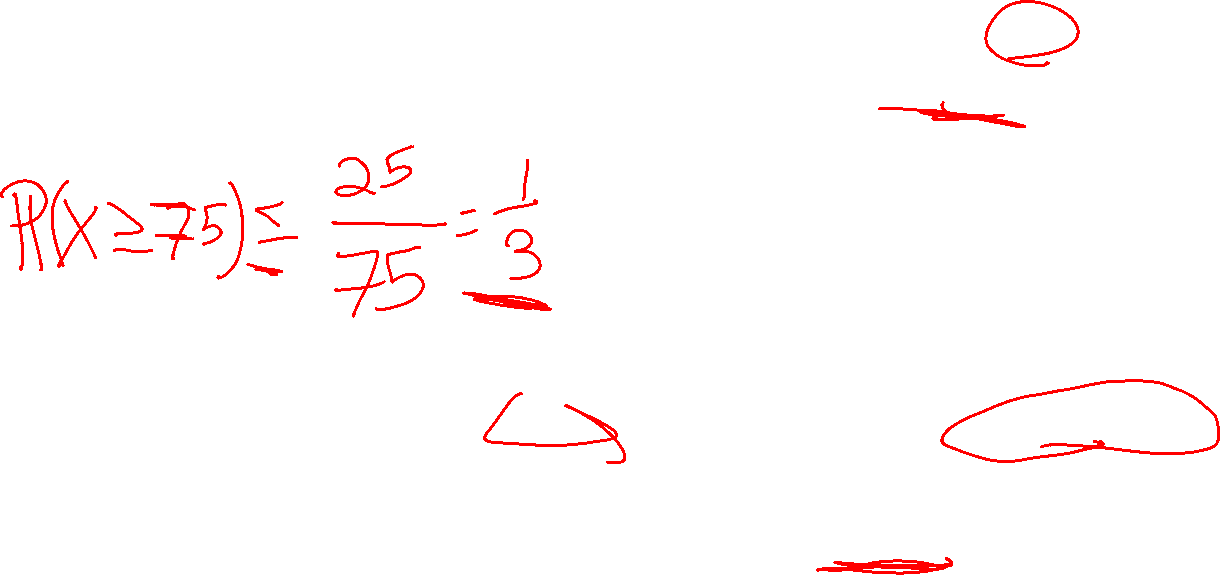 ℙ(X ≥ 75) ≤ 25/75 = 1/3